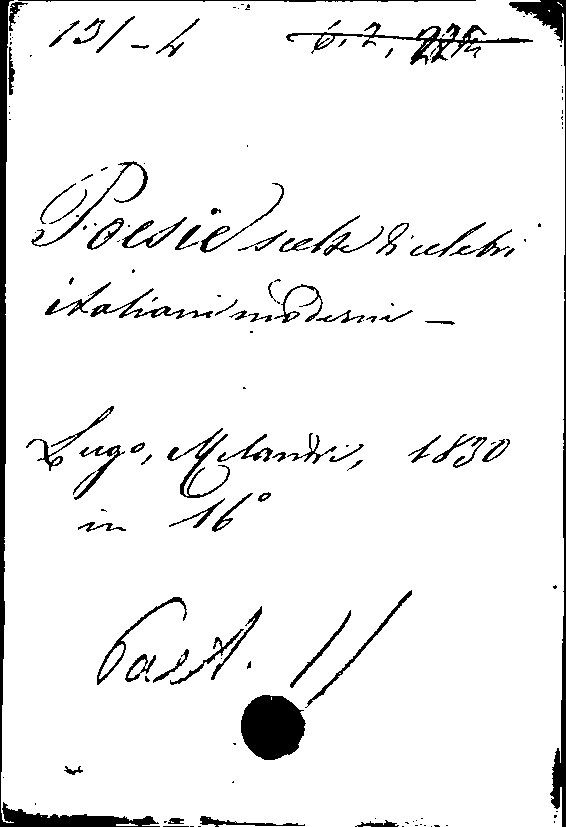 131-4 6.2.
Poesie scelte di celebri
italiani moderni -
Lugo, Melandri, 1830
in 16°
Past. 11